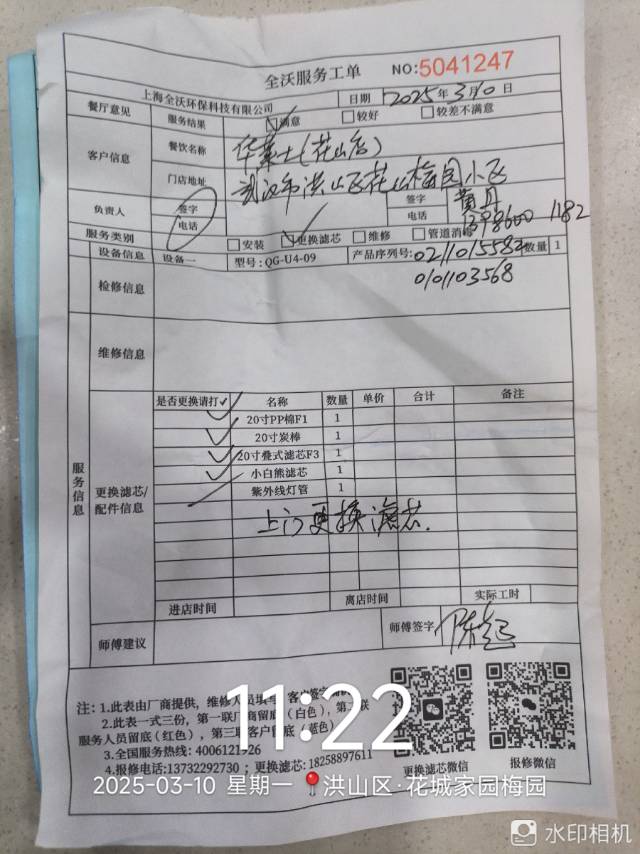 全沃服务工单 NO:5041247
上海全沃环保科技有限公司 日期 2025年3月10日
餐厅意见 服务结果 ☑满意 □较好 □较差不满意
客户信息 餐饮名称 华莱士(花山店)
门店地址 武汉市洪山区花山梅园小区
负责人 签字 签字 黄丹
电话 电话 1398600 1182
服务类别 □安装 ☑更换滤芯 □维修 □管道消
设备信息 设备一 型号:QG-U4-09 产品序列号: 数量 1
0101103568
检修信息
维修信息
服务信息
更换滤芯/配件信息
是否更换请打✓ 名称 数量 单价 合计 备注
✓ 20寸PP棉F1 1
✓ 20寸炭棒 1
✓ 20寸叠式滤芯F3 1
✓ 小白熊滤芯 1
紫外线灯管 1
上门更换滤芯.
进店时间 离店时间 实际工时
师傅建议 师傅签字
注:1.此表由厂商提供,维修人员填写,客户签字
2.此表一式三份,第一联厂商留底(白色),第二联
服务人员留底(红色),第三联客户留底(蓝色)
3.全国服务热线:4006121926
4.报修电话:13732292730 ;更换滤芯:18258897611
更换滤芯微信 报修微信
11:22
2025-03-10 星期一 洪山区·花城家园梅园
水印相机